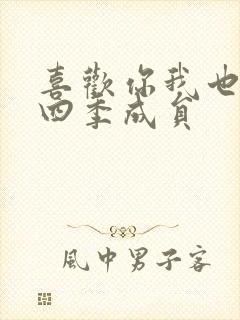 喜歡你我也
四季成員
風中男子客